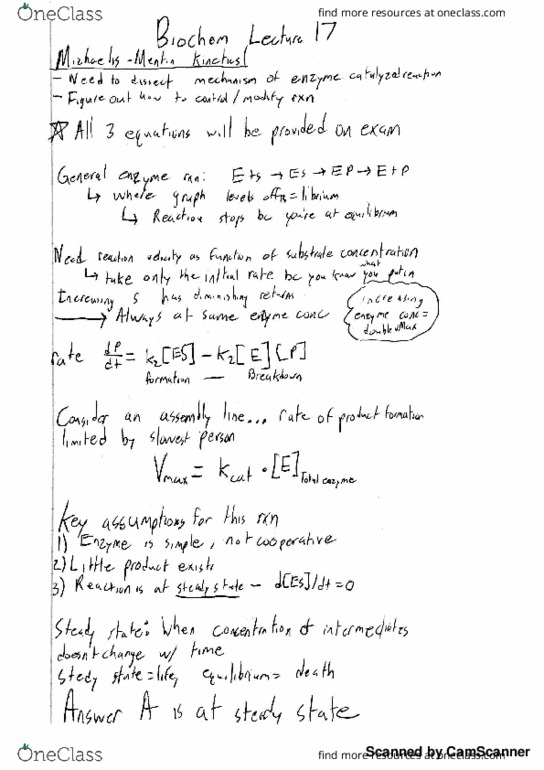 OneClass
find more resources at oneclass.com
Biochem Lecture 17
Michaelis-Mentin Kinetics
- Need to disect mechanism of enzyme catalyzed reaction
- Figure out how to control/modify rxn
☆ All 3 equations will be provided on exam
General enzyme rxn: E+s → Es → EP → E+P
↳ Where graph levels off = librium
↳ Reaction stops bc you're at equilibrium
Need reaction velocity as function of substrate concentration
↳ take only the initial rate bc you know what you put in
Increasing S has diminishing returns
→ Always at same enzyme conc
increasing
enzyme conc =
double vMax
rate dP/dt = k₂[ES] - k₂[E][P]
formation — Breakdown
Consider an assembly line... rate of product formation
limited by slowest person
Vmax = kcat · [E]Total enzyme
Key assumptions for this rxn
1) Enzyme is simple, not cooperative
2) Little product exists
3) Reaction is at steady state - d[Es]/dt = 0
Steady state: When concentration of intermediates
doesn't change w/ time
Stedy state = life, equilibrium = death
Answer A is at steady state
Scanned by CamScanner
OneClass
find more resources at oneclass.com